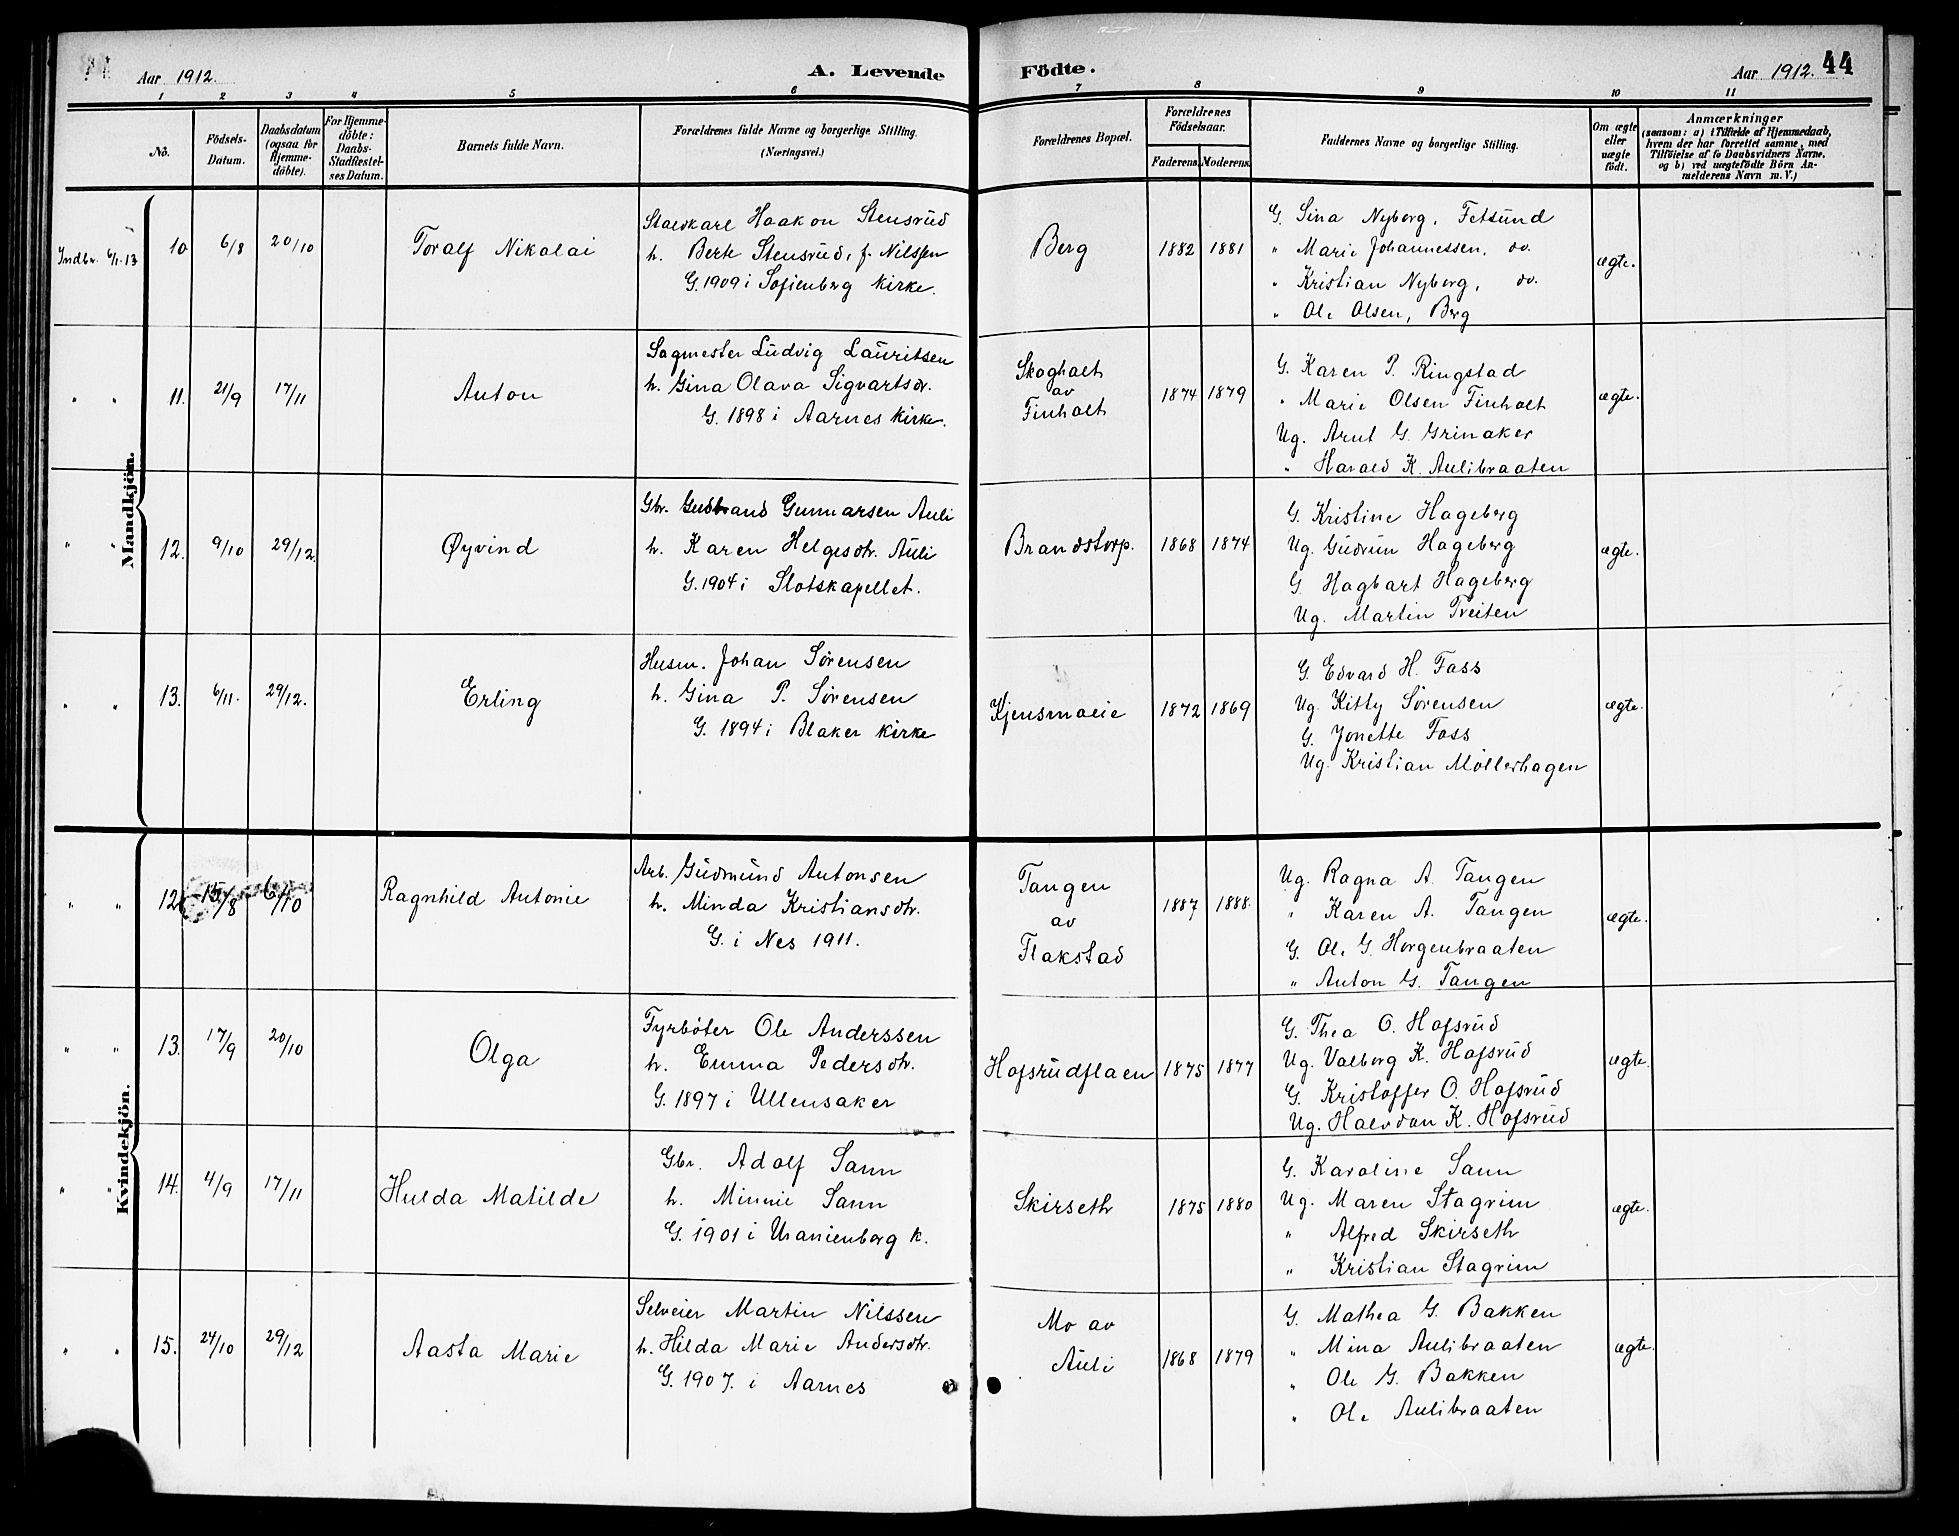 Aar 1912.
A. Levende Födte.
Aar 1912. 44
1 2 3 4 5 6 7 8 9 10 11
No.
Födsels-Datum.
Daabsdatum (ogsaa for Hjemme-döbte).
For Hjemme-döbte: Daabs-Stadfæstel-ses Datum.
Barnets fulde Navn.
Forældrenes fulde Navne og borgerlige Stilling.
(Næringsvei.)
Forældrenes Bopæl.
Forældrenes Födselsaar.
Faderens. Moderens.
Faddernes Navne og borgerlige Stilling.
Om ægte eller uægte födt.
Anmærkninger
(saasom: a) i Tilfælde af Hjemmedaab, hvem der har forrettet samme, med Tilföielse af to Daabsvidners Navne, og b) ved uægtefödte Börn An-melderens Navn m. V.)
Mandkjön.
Indbr. 6/1.13 10. 6/8 20/10 Toralf Nikolai
Staldkarl Haakon Stensrud
h. Berte Stensrud, f. Nilssen
G. 1909 i Sofienberg kirke.
Berg 1882 1881
G. Sina Nyberg, Fetsund
" Marie Johannessen, do.
" Kristian Nyberg, do.
" Ole Olsen, Berg
ægte.
" " 11. 21/9 17/11 Anton
Sagmester Ludvig Lauritsen
h. Gina Olava Sigvartsdr.
G. 1898 i Aarnes kirke.
Skogholt
av
Finholt
1874 1879
G. Karen P. Ringstad
" Marie Olsen Finholt
Ug. Arnt G. Grinaker
" Harald K. Aulibraaten
ægte.
" " 12. 9/10 29/12. Øyvind
Gbr. Gudbrand Gunnarsen Auli
h. Karen Helgesdtr. Auli
G. 1904 i Slotskapellet.
Brandstorp. 1868 1874
G. Kristine Hageberg
Ug. Gudrun Hageberg
G. Hagbart Hageberg
Ug. Martin Tveiten
ægte.
" " 13. 6/11. 29/12. Erling
Husm. Johan Sørensen
h. Gina P. Sørensen
G. 1894 i Blaker kirke
Kjensmoeie 1872 1869
G. Edvard H. Foss
Ug. Kitty Sørensen
G. Jonette Foss
Ug. Kristian Möllerhagen
ægte.
Kvindekjön.
" " 12. 15/8 6/10 Ragnhild Antonie
Arb. Gudmund Antonsen
h. Minda Kristiansdtr.
G. i Nes 1911.
Tangen
av
Flakstad
1887 1888.
Ug. Ragna A. Tangen
" Karen A. Tangen
G. Ole G. Horgenbraaten
" Anton G. Tangen
ægte.
" " 13. 17/9 20/10 Olga
Fyrböter Ole Anderssen
h. Emma Pedersdtr.
G. 1897 i Ullensaker
Hofsrudflaen 1875 1877
G. Thea O. Hofsrud
Ug. Valborg K. Hofsrud
G. Kristoffer O. Hofsrud
Ug. Halvdan K. Hofsrud
ægte.
" " 14. 4/9 17/11 Hulda Matilde
Gbr. Adolf Sann
h. Minnie Sann
G. 1901 i Uranienborg k.
Skirseth 1875 1880
G. Karoline Sann
Ug. Maren Stagrim
" Alfred Skirseth
" Kristian Stagrim
ægte.
" " 15. 24/10 29/12 Aasta Marie
Selveier Martin Nilssen
h. Hilda Marie Andersdtr.
G. 1907. i Aarnes
Mo av
Auli
1868 1879
G. Mathea G. Bakken
" Mina Aulibraaten
" Ole G. Bakken
" Ole Aulibraaten
ægte.